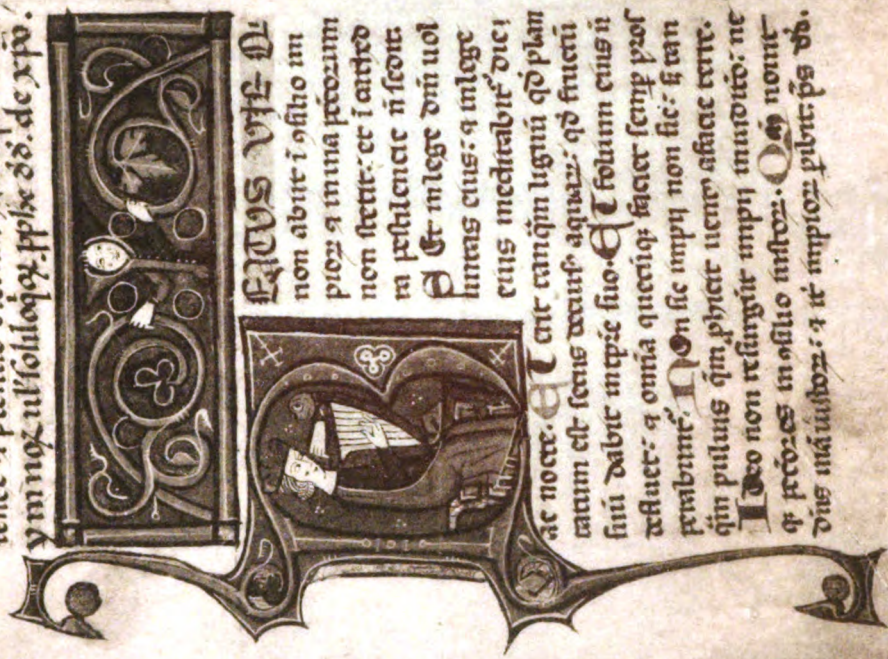 ymnoꝝ ul' soliloqoꝝ. pphe dd'. de xp̄o.
BEATVS VIR Q
non abiit ī ꝯsilio im
pioꝝ ⁊ in uia p̄ctoꝝum
non stetit: et ī cathed
ra pestilencie n̄ sedit.
Et in lege dn̄i uol
untas eius: ⁊ in lege
eius meditabit' die
ac nocte. Et erit tanq̄m lignū qd plan
tatum est secus decurs' aquaꝝ: qd fructū
suū dabit in tp̄re suo. Et folium eius n̄
defluet: ⁊ omīa quecūqꝫ faciet semꝑ pros
perabunt'. Non sic impij non sic: sꝫ tan
q̄m puluis q̄m ꝓhicit uent' a facie terre.
Ideo non resurgūt impij in iudicio: ne
qꝫ p̄ctores in ꝯsilio iustoꝝ. Qm̄ nouit
dn̄s uiā iustoꝝ: ⁊ it' impioꝝ ꝑibit. p̄s dd.